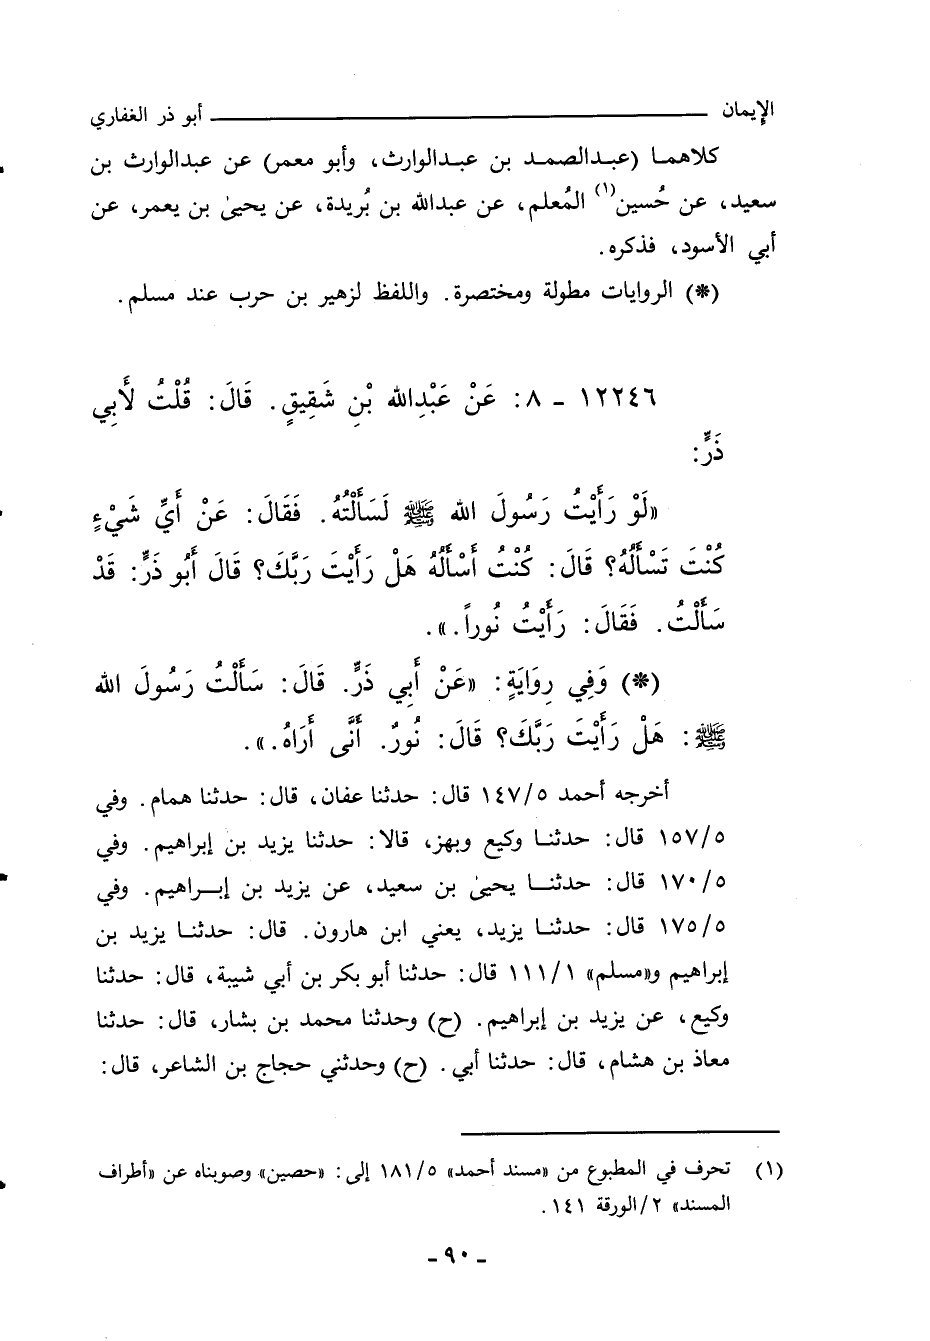 الإيمان ــــــــــ أبو ذر الغفاري
كلاهما (عبدالصمد بن عبدالوارث، وأبو معمر) عن عبدالوارث بن
سعيد، عن حُسين(١) المُعلم، عن عبدالله بن بُريدة، عن يحيىٰ بن يعمر، عن
أبي الأسود، فذكره.
(*) الروايات مطولة ومختصرة. واللفظ لزهير بن حرب عند مسلم.
١٢٢٤٦ ـ ٨: عَنْ عَبْدِالله بْنِ شَقِيقٍ. قَالَ: قُلْتُ لأَبِي
ذَرٍّ:
«لَوْ رَأَيْتُ رَسُولَ الله ﷺ لَسَأَلْتُهُ. فَقَالَ: عَنْ أَيِّ شَيْءٍ
كُنْتَ تَسْأَلُهُ؟ قَالَ: كُنْتُ أَسْأَلُهُ هَلْ رَأَيْتَ رَبَّكَ؟ قَالَ أَبُو ذَرٍّ: قَدْ
سَأَلْتُ. فَقَالَ: رَأَيْتُ نُوراً.».
(*) وَفِي رِوَايَةٍ: «عَنْ أَبِي ذَرٍّ. قَالَ: سَأَلْتُ رَسُولَ الله
ﷺ: هَلْ رَأَيْتَ رَبَّكَ؟ قَالَ: نُورٌ. أَنَّى أَرَاهُ.».
أخرجه أحمد ١٤٧/٥ قال: حدثنا عفان، قال: حدثنا همام. وفي
١٥٧/٥ قال: حدثنا وكيع وبهز، قالا: حدثنا يزيد بن إبراهيم. وفي
١٧٠/٥ قال: حدثنا يحيىٰ بن سعيد، عن يزيد بن إبراهيم. وفي
١٧٥/٥ قال: حدثنا يزيد، يعني ابن هارون. قال: حدثنا يزيد بن
إبراهيم و«مسلم» ١١١/١ قال: حدثنا أبو بكر بن أبي شيبة، قال: حدثنا
وكيع، عن يزيد بن إبراهيم. (ح) وحدثنا محمد بن بشار، قال: حدثنا
معاذ بن هشام، قال: حدثنا أبي. (ح) وحدثني حجاج بن الشاعر، قال:
(١) تحرف في المطبوع من «مسند أحمد» ١٨١/٥ إلى: «حصين» وصوبناه عن «أطراف
المسند» ٢/الورقة ١٤١.
ـ ٩٠ ـ